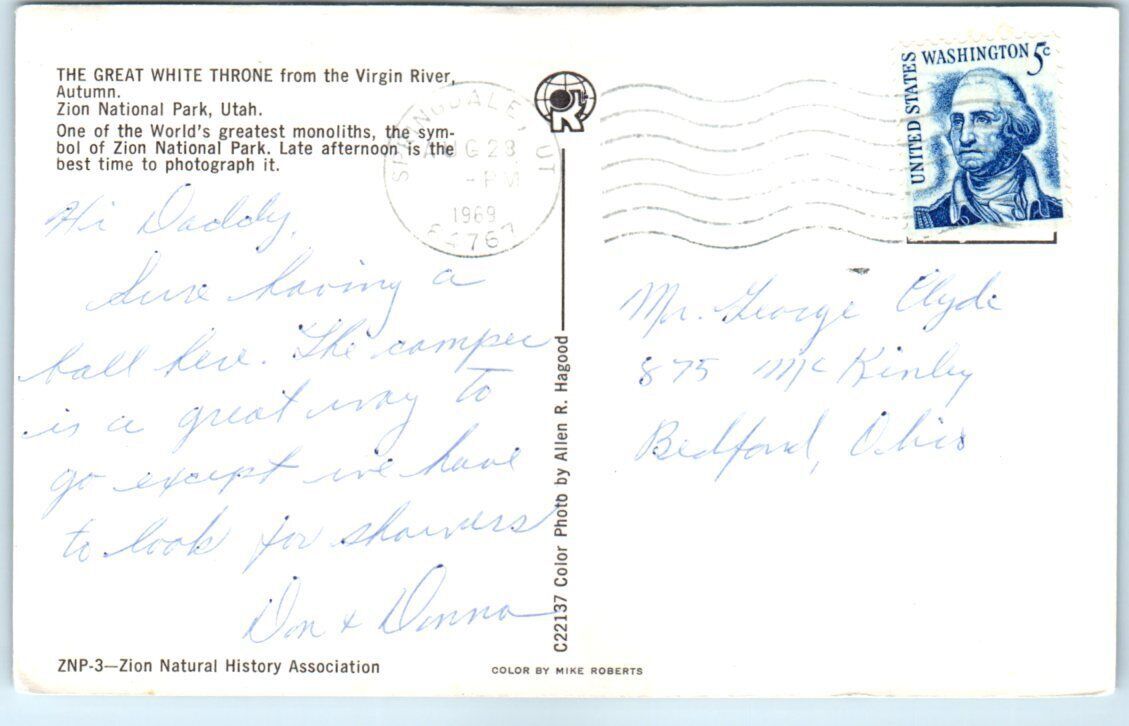 THE GREAT WHITE THRONE from the Virgin River,
Autumn.
Zion National Park, Utah.
One of the World's greatest monoliths, the sym-
bol of Zion National Park. Late afternoon is the
best time to photograph it.
Hi Daddy,
Sure having a
ball here. The camper
is a great way to
go except we have
to look for showers
Don & Donna
ZNP-3—Zion Natural History Association
SPRINGDALE, UT
AUG 28
-PM
1969
84767
R
C22137 Color Photo by Allen R. Hagood
COLOR BY MIKE ROBERTS
UNITED STATES
WASHINGTON 5c
Mr. George Clyde
875 McKinley
Bedford, Ohio